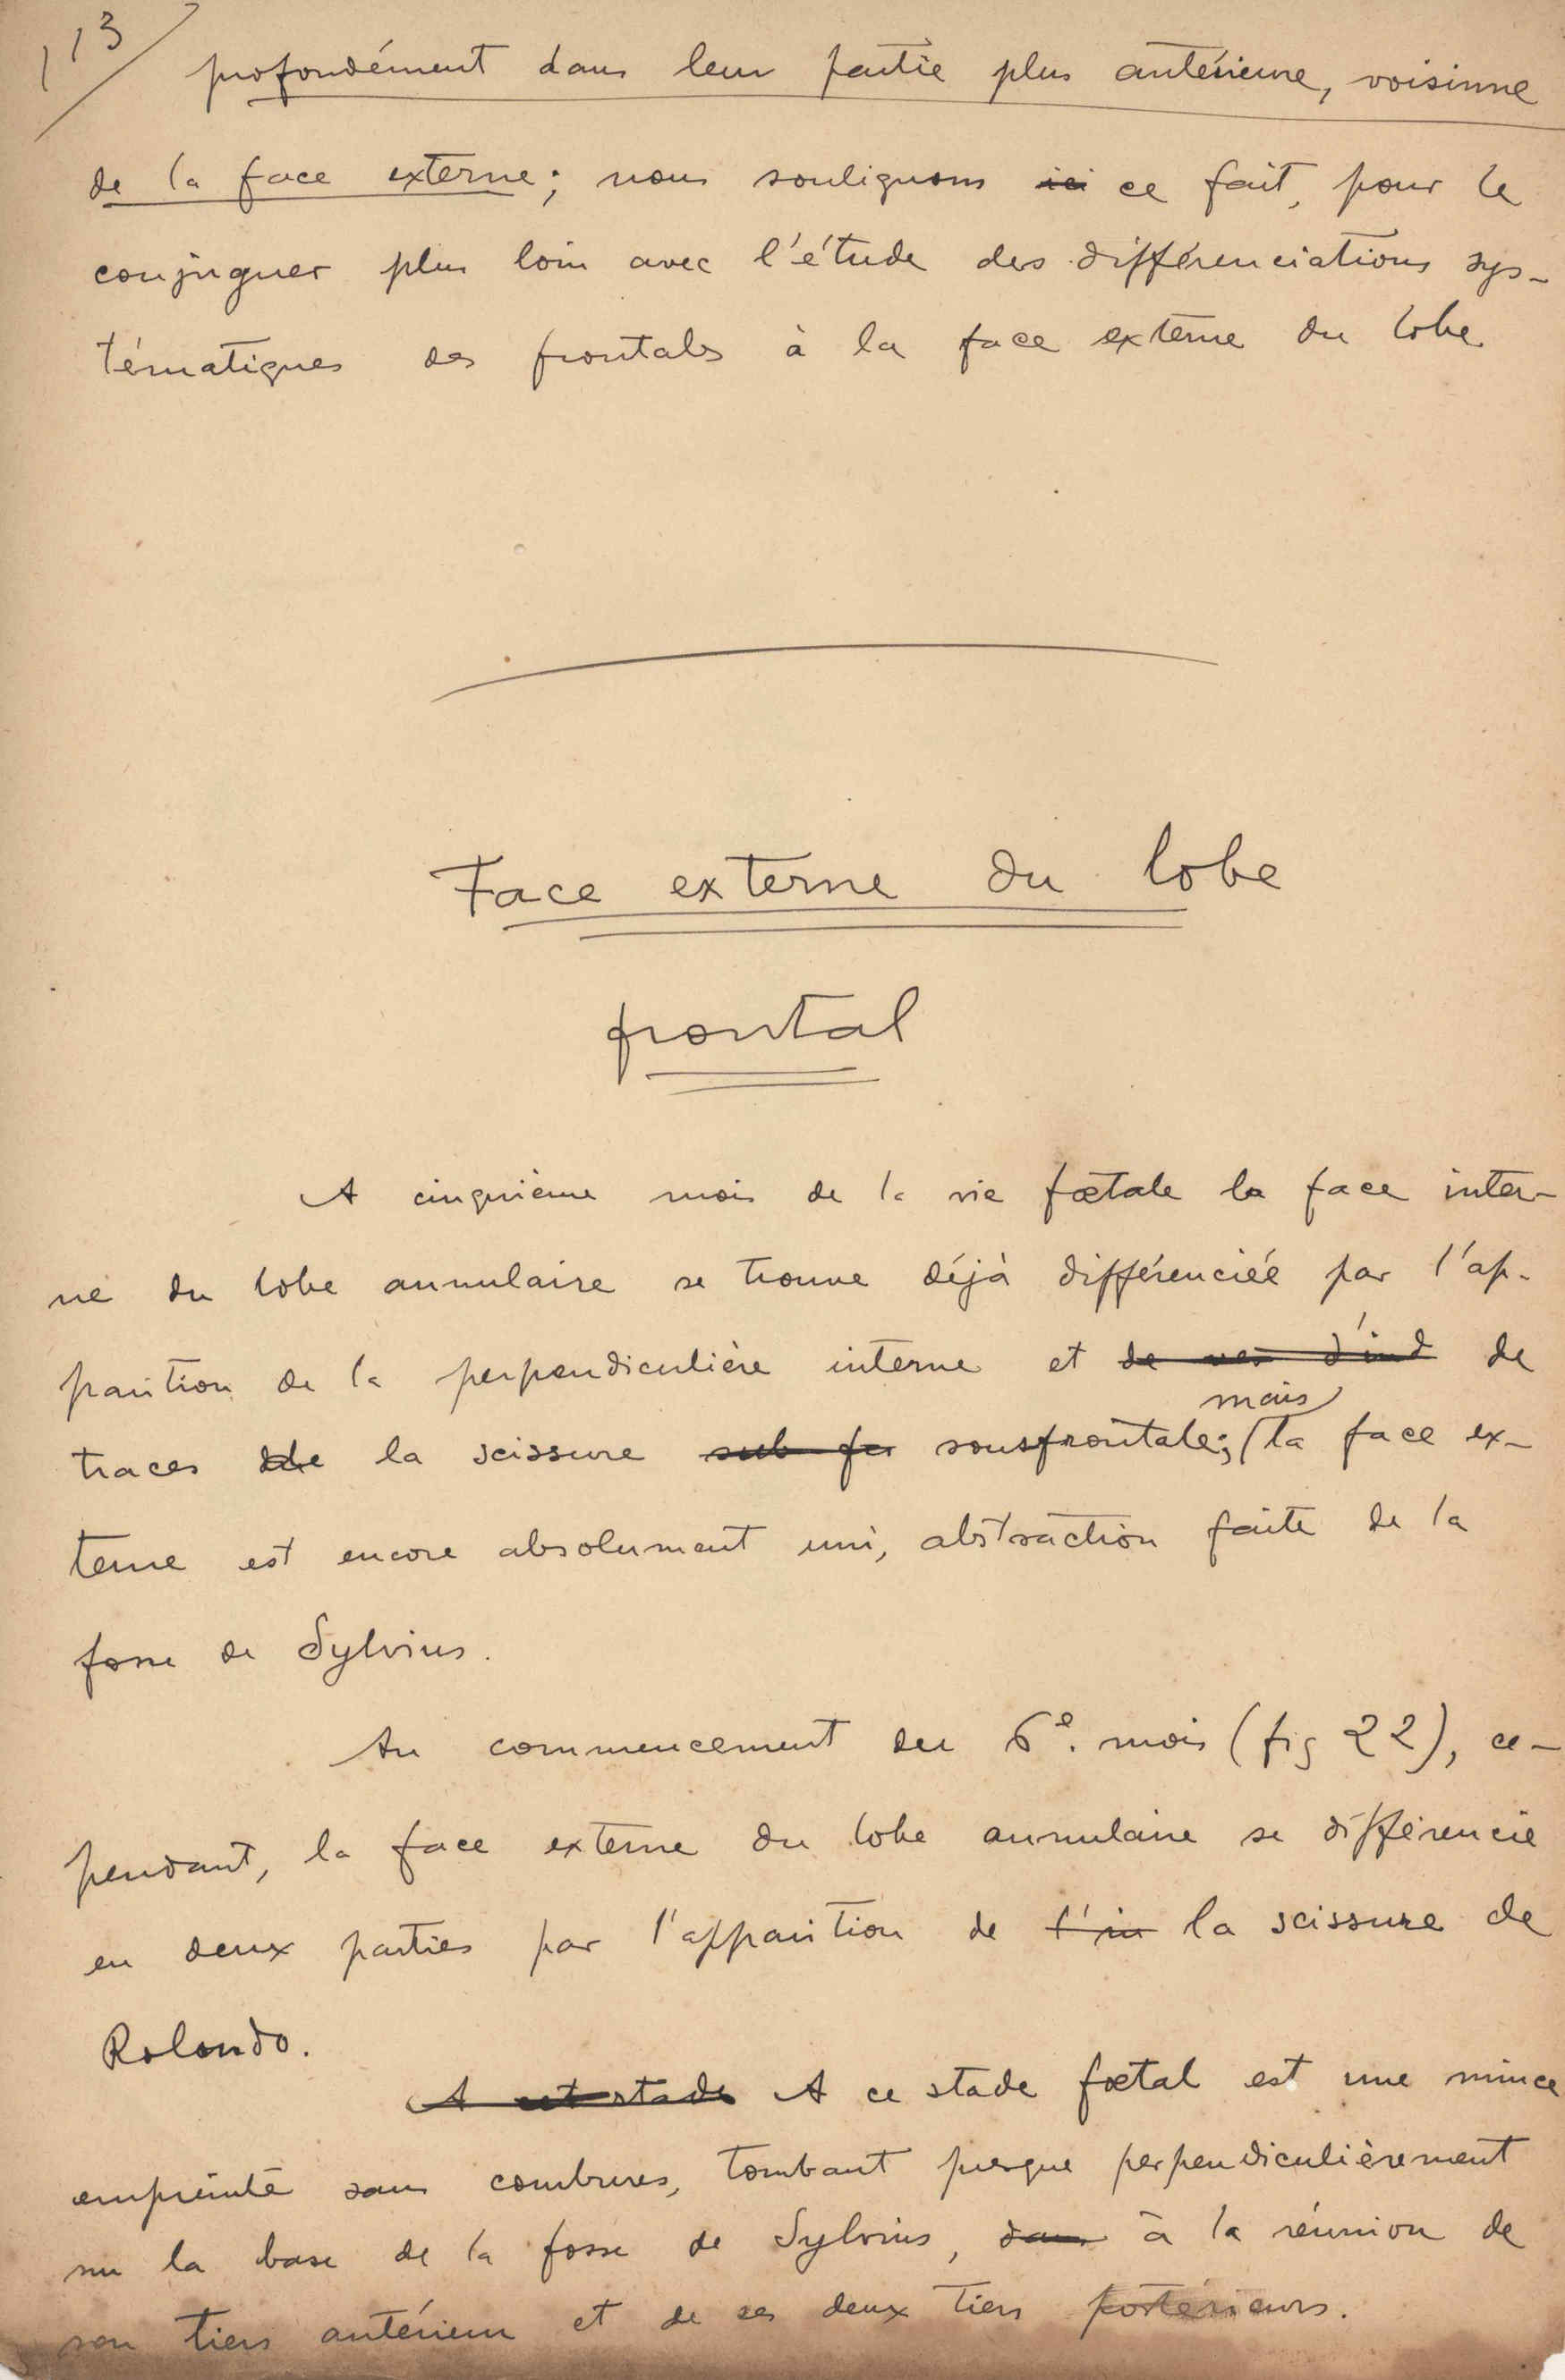 113
profondément dans leur partie plus antérieure, voisinne
de la face externe; nous soulignons ici ce fait, pour le
conjuguer plus loin avec l'étude des différenciations sys-
tématiques des frontales à la face externe du lobe
Face externe du lobe
frontal
A cinquième mois de la vie fœtale la face inter-
ne du lobe annulaire se trouve déjà différenciée par l'ap-
parition de la perpendiculière interne et de d'ind de
mais
traces de la scissure sub sousfrontale; la face ex-
terne est encore absolument uni, abstraction faite de la
fosse de Sylvius.
Au commencement du 6e. mois (fig 22), ce-
pendant, la face externe du lobe annulaire se différencie
en deux parties par l'apparition de l'in la scissure de
Rolando.
A cet stade A ce stade fœtal est une mince
empreinte sans courbures, tombant presque perpendiculièrement
sur la base de la fosse de Sylvius, dans à la réunion de
son tiers antérieur et de ses deux tiers postérieurs.